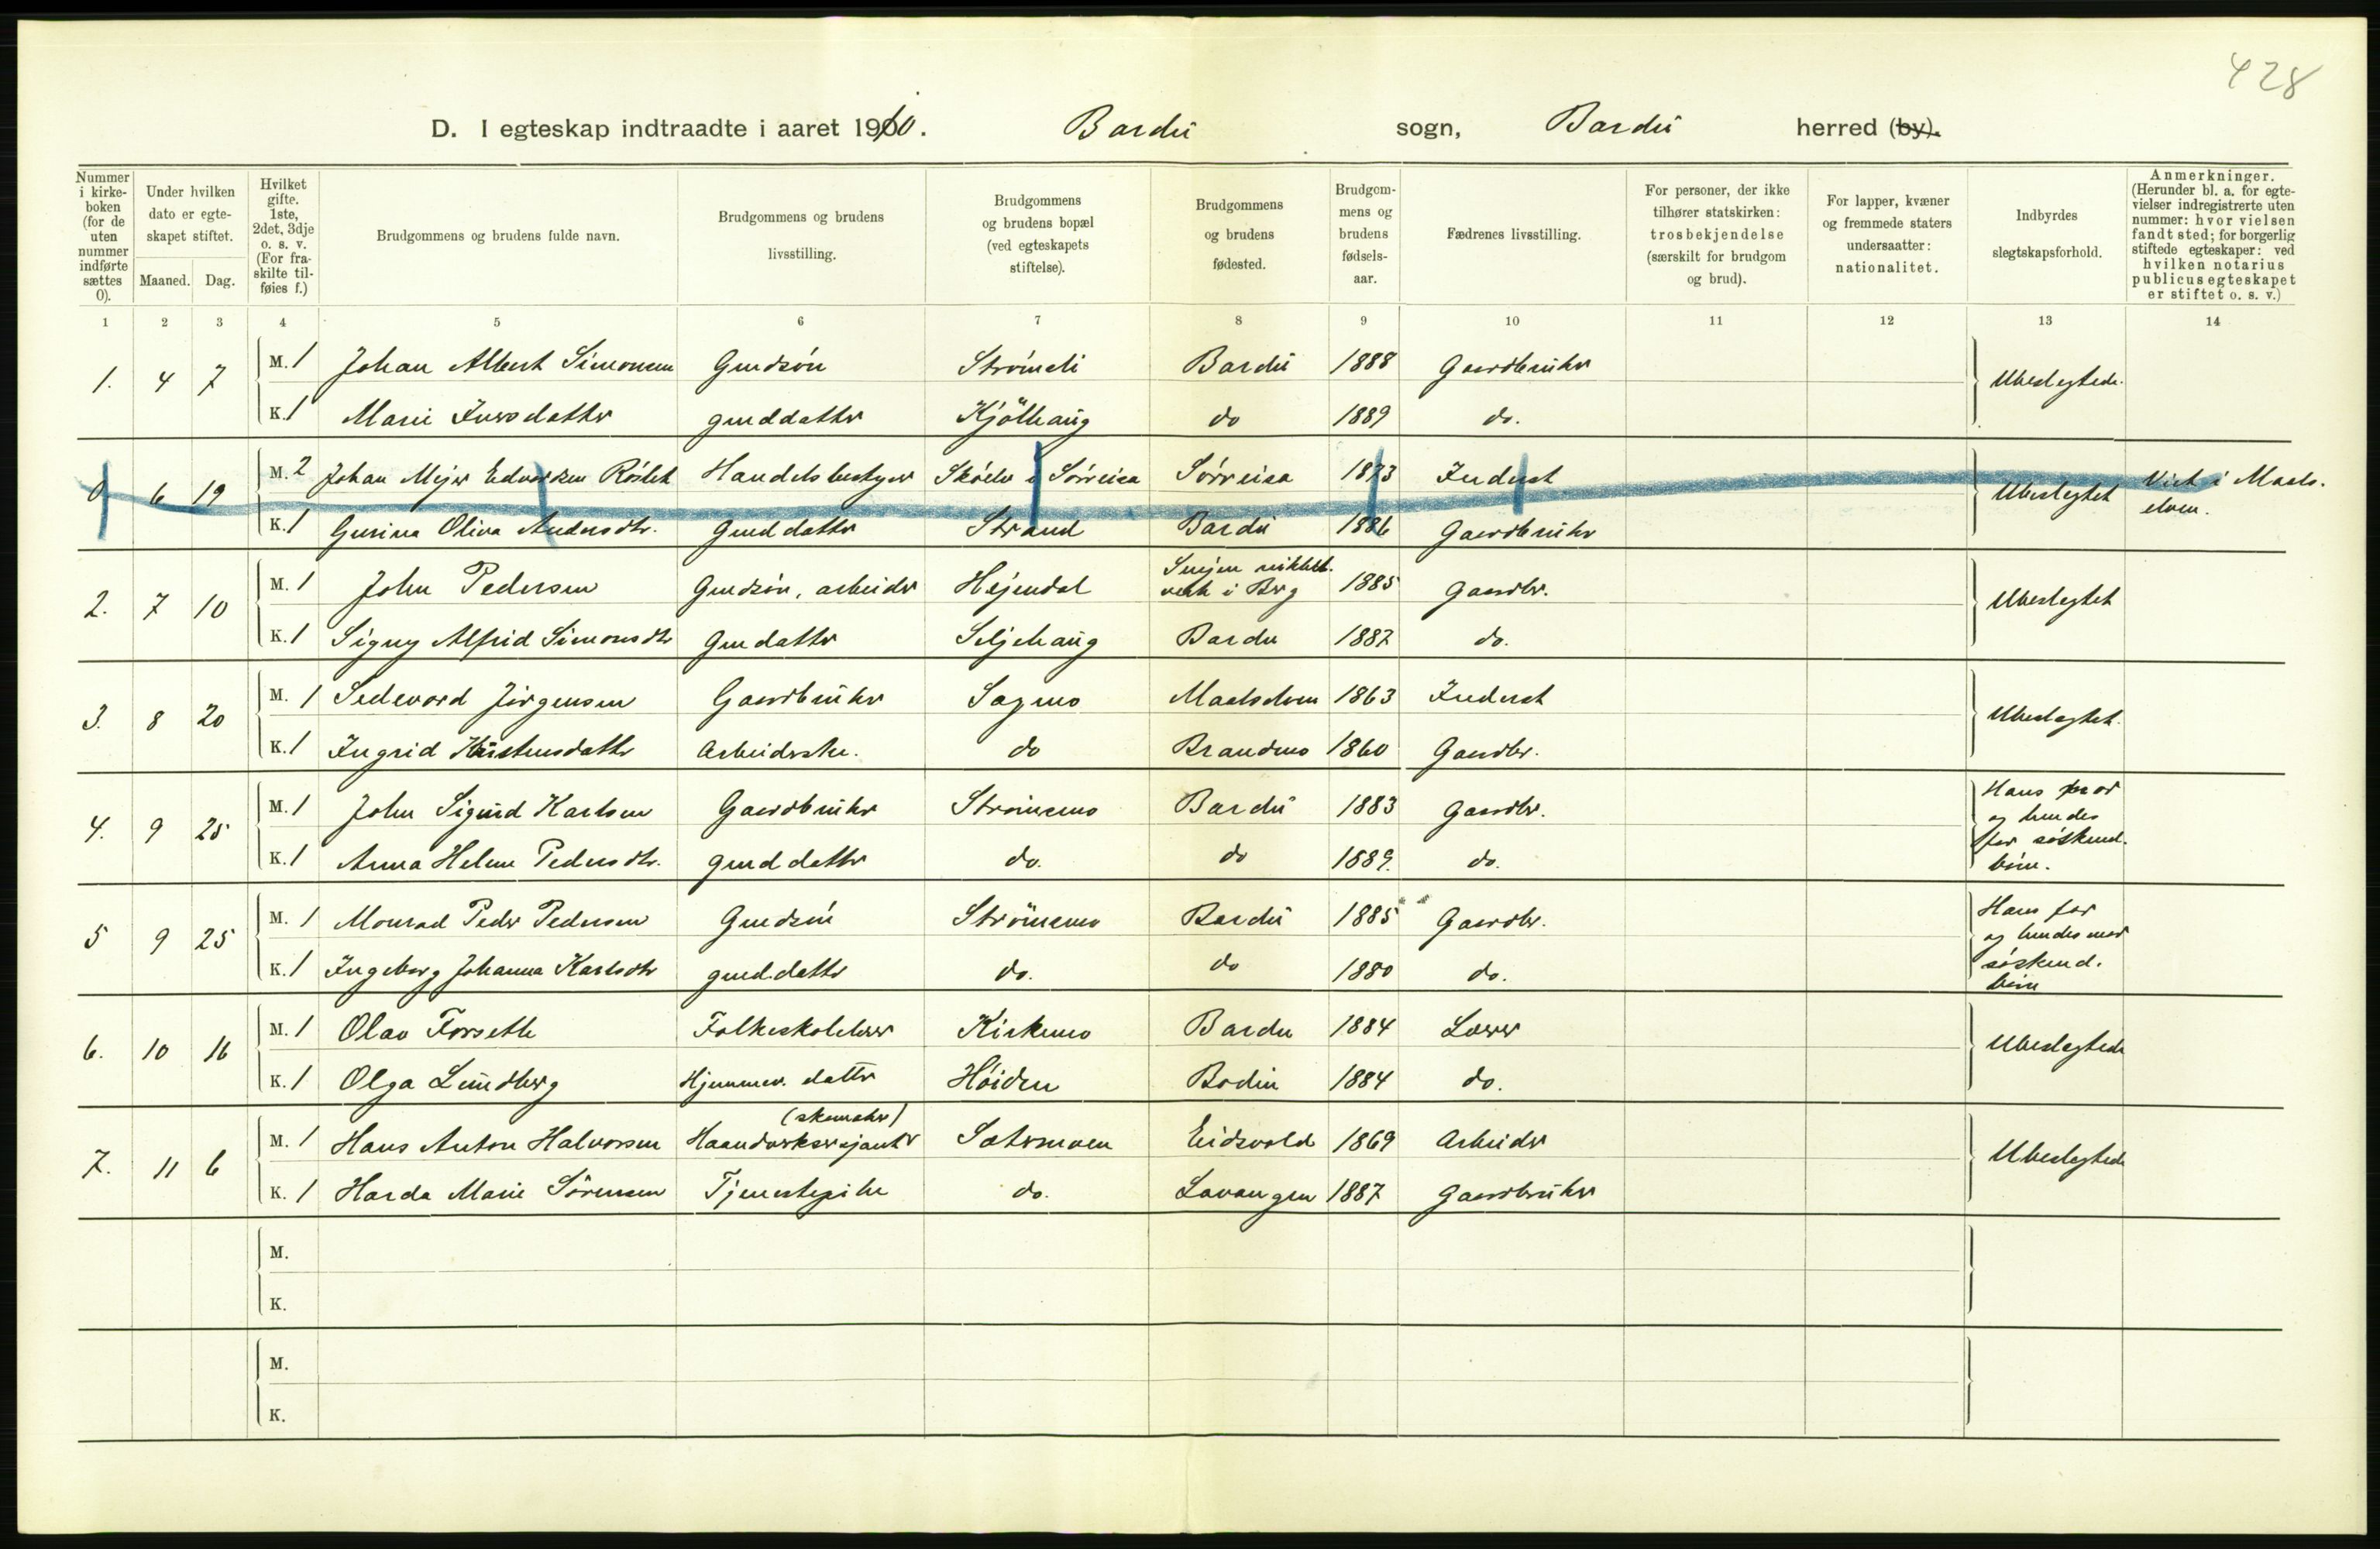 428
D. I egteskap indtraadte i aaret 1910. Bardu sogn, Bardu herred (by).
Nummer i kirke-boken (for de uten nummer indførte sættes 0).
Under hvilken dato er egte-skapet stiftet.
Maaned. Dag.
Hvilket gifte. 1ste, 2det, 3dje o. s. v. (For fra-skilte til-føies f.)
Brudgommens og brudens fulde navn.
Brudgommens og brudens livsstilling.
Brudgommens og brudens bopæl (ved egteskapets stiftelse).
Brudgommens og brudens fødested.
Brudgom-mens og brudens fødsels-aar.
Fædrenes livsstilling.
For personer, der ikke tilhører statskirken: trosbekjendelse (særskilt for brudgom og brud).
For lapper, kvæner og fremmede staters undersaatter: nationalitet.
Indbyrdes slegtskapsforhold.
Anmerkninger. (Herunder bl. a. for egte-vielser indregistrerte uten nummer: hvor vielsen fandt sted; for borgerlig stiftede egteskaper: ved hvilken notarius publicus egteskapet er stiftet o. s. v.)
1 2 3 4 5 6 7 8 9 10 11 12 13 14
1. 4 7 M. 1 Johan Albert Simonsen Gmdsön Strömsli Bardu 1888 Gaardbruker Ubeslegtede.
K. 1 Marie Iversdatter gmddatter Kjölhaug do 1889 do.
0 6 19 M. 2 Johan Mejer Edvardsen Handelsbestyrer i Sörreisa Sörreisa 1873 Inderst Ubeslegtet Viet i Maals-elven.
K. 1 Gurina Oliva Andersdtr. Gmddatter Strand Bardu 1886 Gaardbruker
2. 7 10 M. 1 John Pedersen Gmdsön, arbeider Hejendal Senjen nikkel-verk i Berg 1885 Gaardbr. Ubeslegtet
K. 1 Signy Alfrid Simonsdtr Gmdatter Seljehaug Bardu 1887 do.
3. 8 20 M. 1 Sedevard Jörgensen Gaardbruker Sagmo Maalselven 1863 Inderst Ubeslegtet.
K. 1 Ingrid Kristensdatter Arbeiderske. do Brandmo 1860 Gaardbr.
4. 9 25 M. 1 John Sigurd Karlsen Gaardbruker Strömsmo Bardu 1883 Gaardbr. Hans mor og hendes far söskend-börn.
K. 1 Anna Helene Pedersdtr. gmddatter do. do 1889. do.
5 9 25 M. 1 Monrad Peder Pedersen Gmdsön Strömsmo Bardu 1885 Gaardbr. Hans far og hendes mor söskend-börn
K. 1 Ingeborg Johanna Karlsdtr gmddatter do. do 1880 do.
6. 10 16 M. 1 Olav Forseth Folkeskolelærer Kirkemo Bardu 1884 Lærer Ubeslegtede
K. 1 Olga Lundberg Hjemmev. datter Höiden Bodin 1884 do.
7. 11 6 M. 1 Hans Anton Halvorsen Haandverkersersjant (skomaker) Sætermoen Eidsvold 1869 Arbeider Ubeslegtede
K. 1 Harda Marie Sörensen Tjenestepike do. Lavangen 1887 Gaardbruker
M.
K.
M.
K.